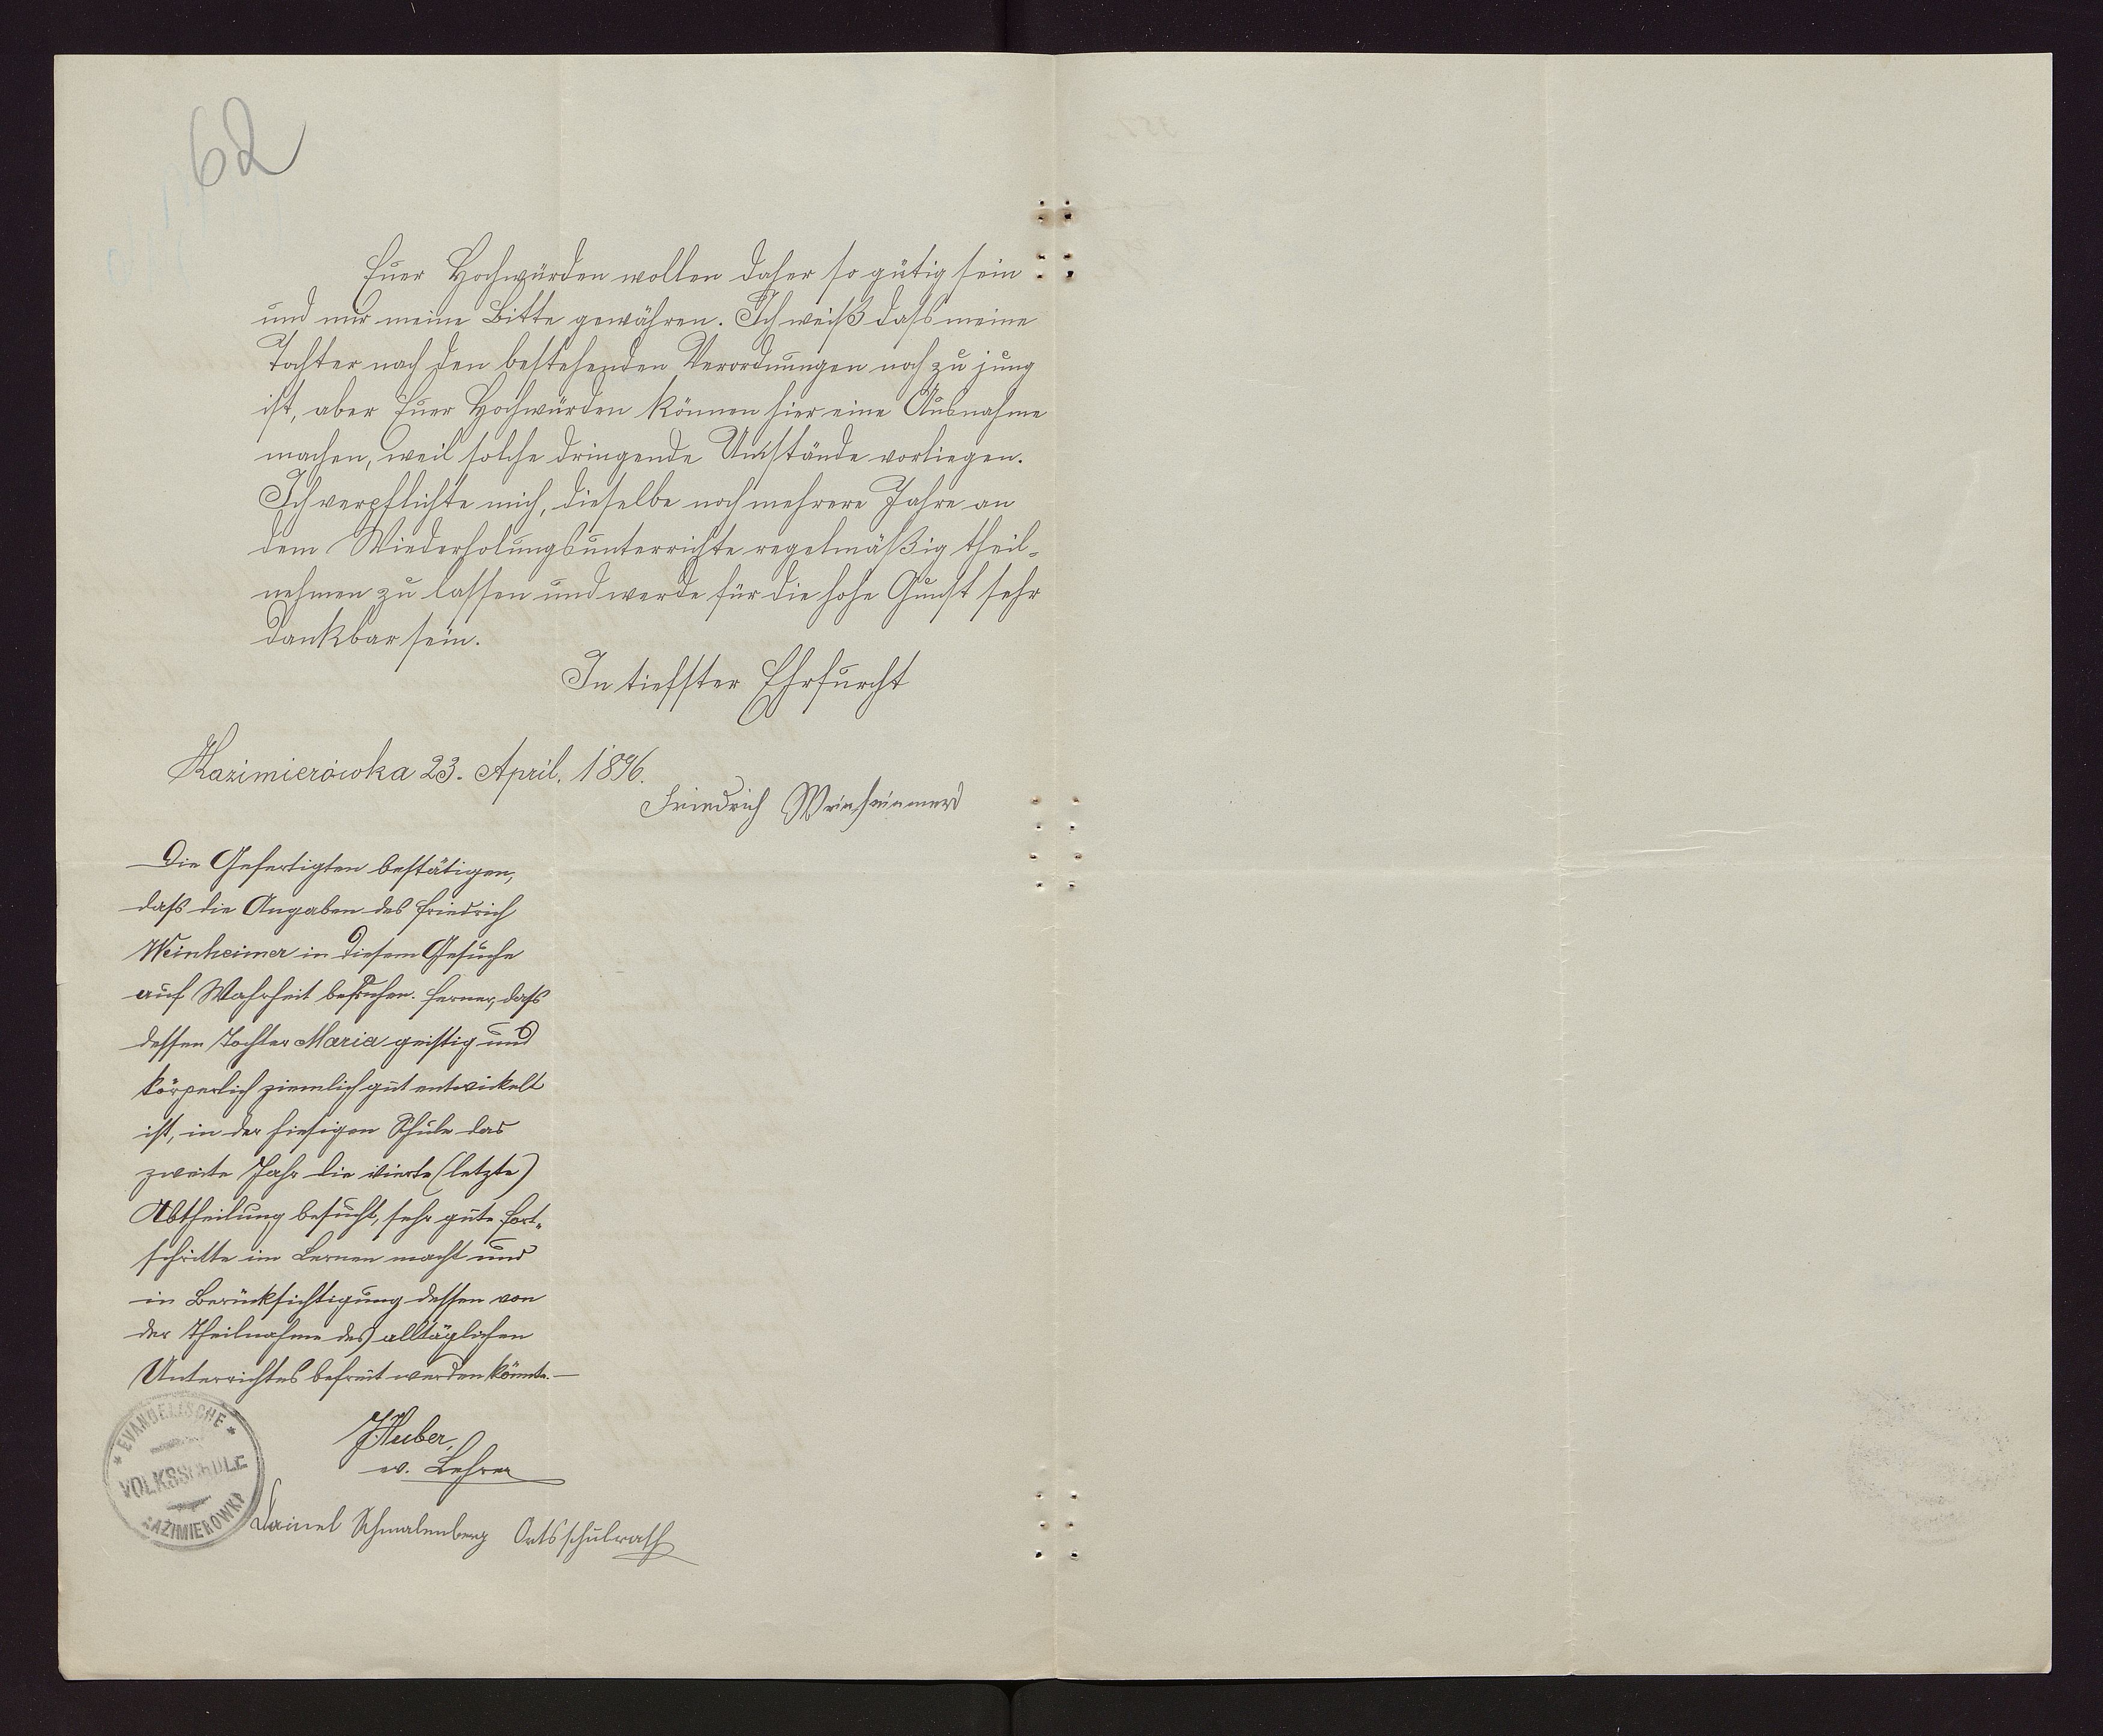 62
Euer Hochwürden wollen daher so gütig sein
und mir meine Bitte gewähren. Ich weiß dass meine
Tochter nach den bestehenden Verordnungen noch zu jung
ist, aber Euer Hochwürden können hier eine Ausnahme
machen, weil solche dringende Umstände vorliegen.
Ich verpflichte mich, dieselbe noch mehrere Jahre an
dem Wiederholungsunterrichte regelmäßig theil-
nehmen zu lassen und werde für die hohe Gunst sehr
dankbar sein.
In tiefster Ehrfurcht
Kazimierówka 23. April. 1896.
Friedrich
Die Gefertigten bestätigen,
dass die Angaben des Friedrich
Weinheimer in diesem Gesuche
auf Wahrheit beruhen. Ferner, dass
dessen Tochter Maria geistig und
körperlich ziemlich gut entwickelt
ist, in der hiesigen Schule das
zweite Jahr die vierte (letzte)
Abtheilung besucht, sehr gute Fort-
schritte im Lernen macht und
in Berücksichtigung dessen von
der Theilnahme des alltäglichen
Unterrichtes befreit werden könnte.—
J Huber,
ev. Lehrer
Daniel Schmalenberg Ortsschulrath
* EVANGELISCHE *
VOLKSSCHULE
KAZIMIERÓWKA